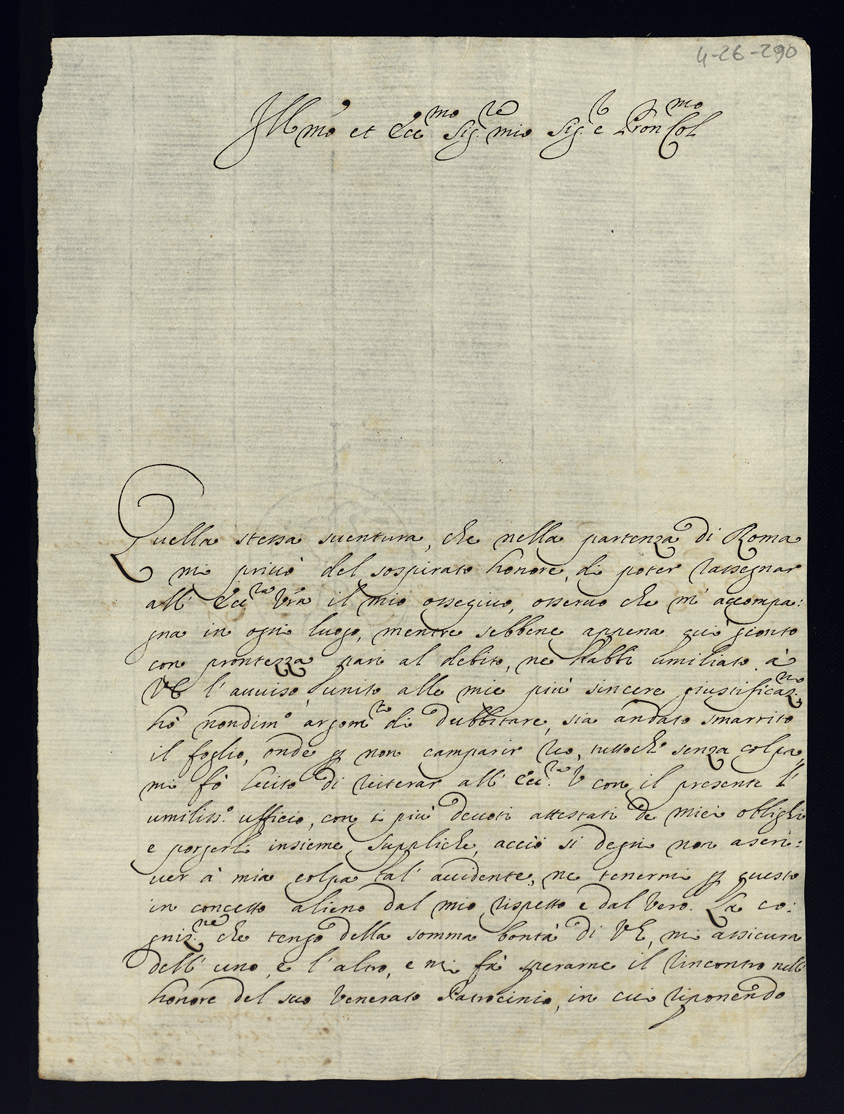 4-26-290
Ill.mo et Ecc.mo Sig.re mio Sig.r e Pron Col.mo
Quella stessa suentura, che nella partenza di Roma
mi priuò del sospirato honore, di poter rassegnar
all' Ecc.za V̄ra il mio ossequio, osseruo che m' accompa:
gna in ogni luogo, mentre sebbene appena quì gionto
con prontezza pari al debito, ne habbi umiliato à
VE l'auuiso unito alle mie più sincere giustificaz.ni
hò nondim.o argom.to di dubbitare, sia andato smarrito
il foglio, onde p non comparir reo, tuttoche senza colpa,
mi fò lecito di reiterar all' Ecc.za V con il presente l'
umiliss.o ufficio, con i più deuoti attestati de miei oblighi
e porgerli insieme suppliche, acciò si degni non ascri:
uer à mia colpa tal' accidente, ne tenermi p questo
in concetto alieno dal mio rispetto e dal vero. La co:
gniz.ne che tengo della somma bontà di VE, mi assicura
dell' uno, e l'altro, e mi fà sperarne il rincontro nell'
honore del suo venerato Patrocinio, in cui riponendo